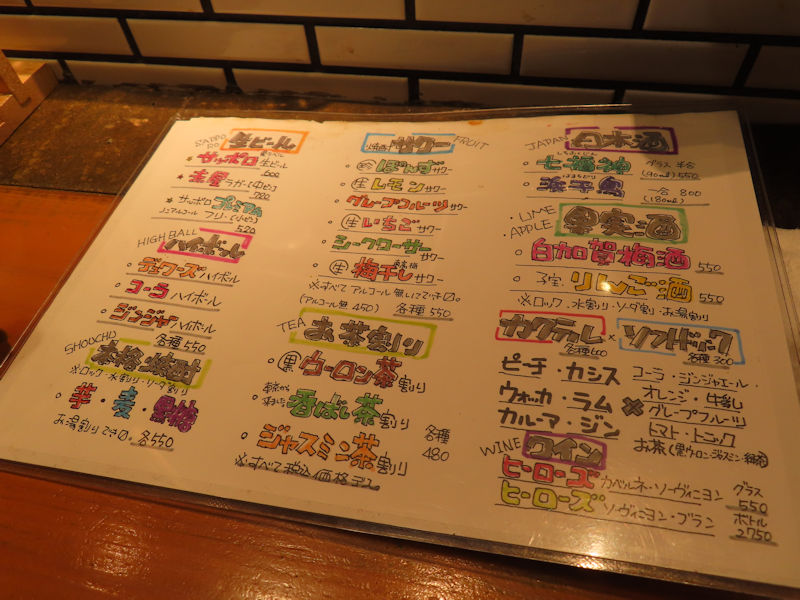 SAPPORO
生ビール
サッポロ 生ビール
600
赤星 ラガー(中ビン)
700
サッポロプレミアム
ノンアルコール フリー(小ビン)
520
HIGH BALL
ハイボール
デュワーズハイボール
コーラハイボール
ジンジャハイボール
各種550
SHOUCHU
本格焼酎
※ロック・水割り・ソーダ割り
芋・麦・黒糖
お湯割りできます。各550
焼酎サワー FRUIT
ぽんずサワー
生レモンサワー
グレープフルーツサワー
生いちごサワー
シークワーサーサワー
生梅干しサワー
※すべてアルコール無しにできます。
(アルコール無 450) 各種550
TEA
お茶割り
黒ウーロン茶割り
香ばし茶割り
ジャスミン茶割り
各種
480
※すべて税込価格です
JAPAN
日本酒
しちふくじん
七福神 グラス 半合
(90ml) 550
はまちどり
浜千鳥 一合 800
(180ml)
・UME
・APPLE
果実酒
白加賀梅酒 550
子宝 りんご酒 550
※ロック・水割り・ソーダ割り・お湯割り
カクテル × ソフトドリンク
各種600
各種300
ピーチ・カシス
ウォッカ・ラム
カルーア・ジン
×
コーラ・ジンジャエール・
オレンジ・牛乳
グレープフルーツ
トマト・トニック
お茶(黒ウーロン・ジャスミン・緑茶)
WINE
ワイン
ヒーローズ カベルネ・ソーヴィニヨン
ヒーローズ ソーヴィニヨン・ブラン
グラス
550
ボトル
2750